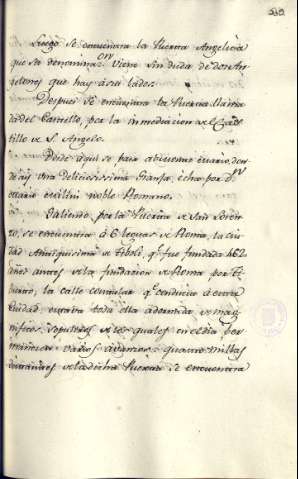 Luego se encuentra la Puerta Angelica
que su denominacion viene sin duda de dos An-
gelones que hay á sus lados.
Despues se encuentra la Puerta llama-
da del Castillo, por la inmediacion al Cas-
tillo de S. Angelo.
Desde aqui se pasa
una deliciosissima Granja, echa por
noble Romano.
Saliendo por la Puerta de San Loren-
zo, se encuentra á 6 leguas de Roma, la ciu-
dad Antiquisima de Tiboli, q.e fue fundada 462
años antes de la fundacion de Roma por
la calle consular q.e conducia á esta
Ciudad, estava toda ella adornada de mag-
nificos sepulcros de los quales en el dia per-
manecen varios : quatro millas
distantes de la dicha Puerta se encuentra